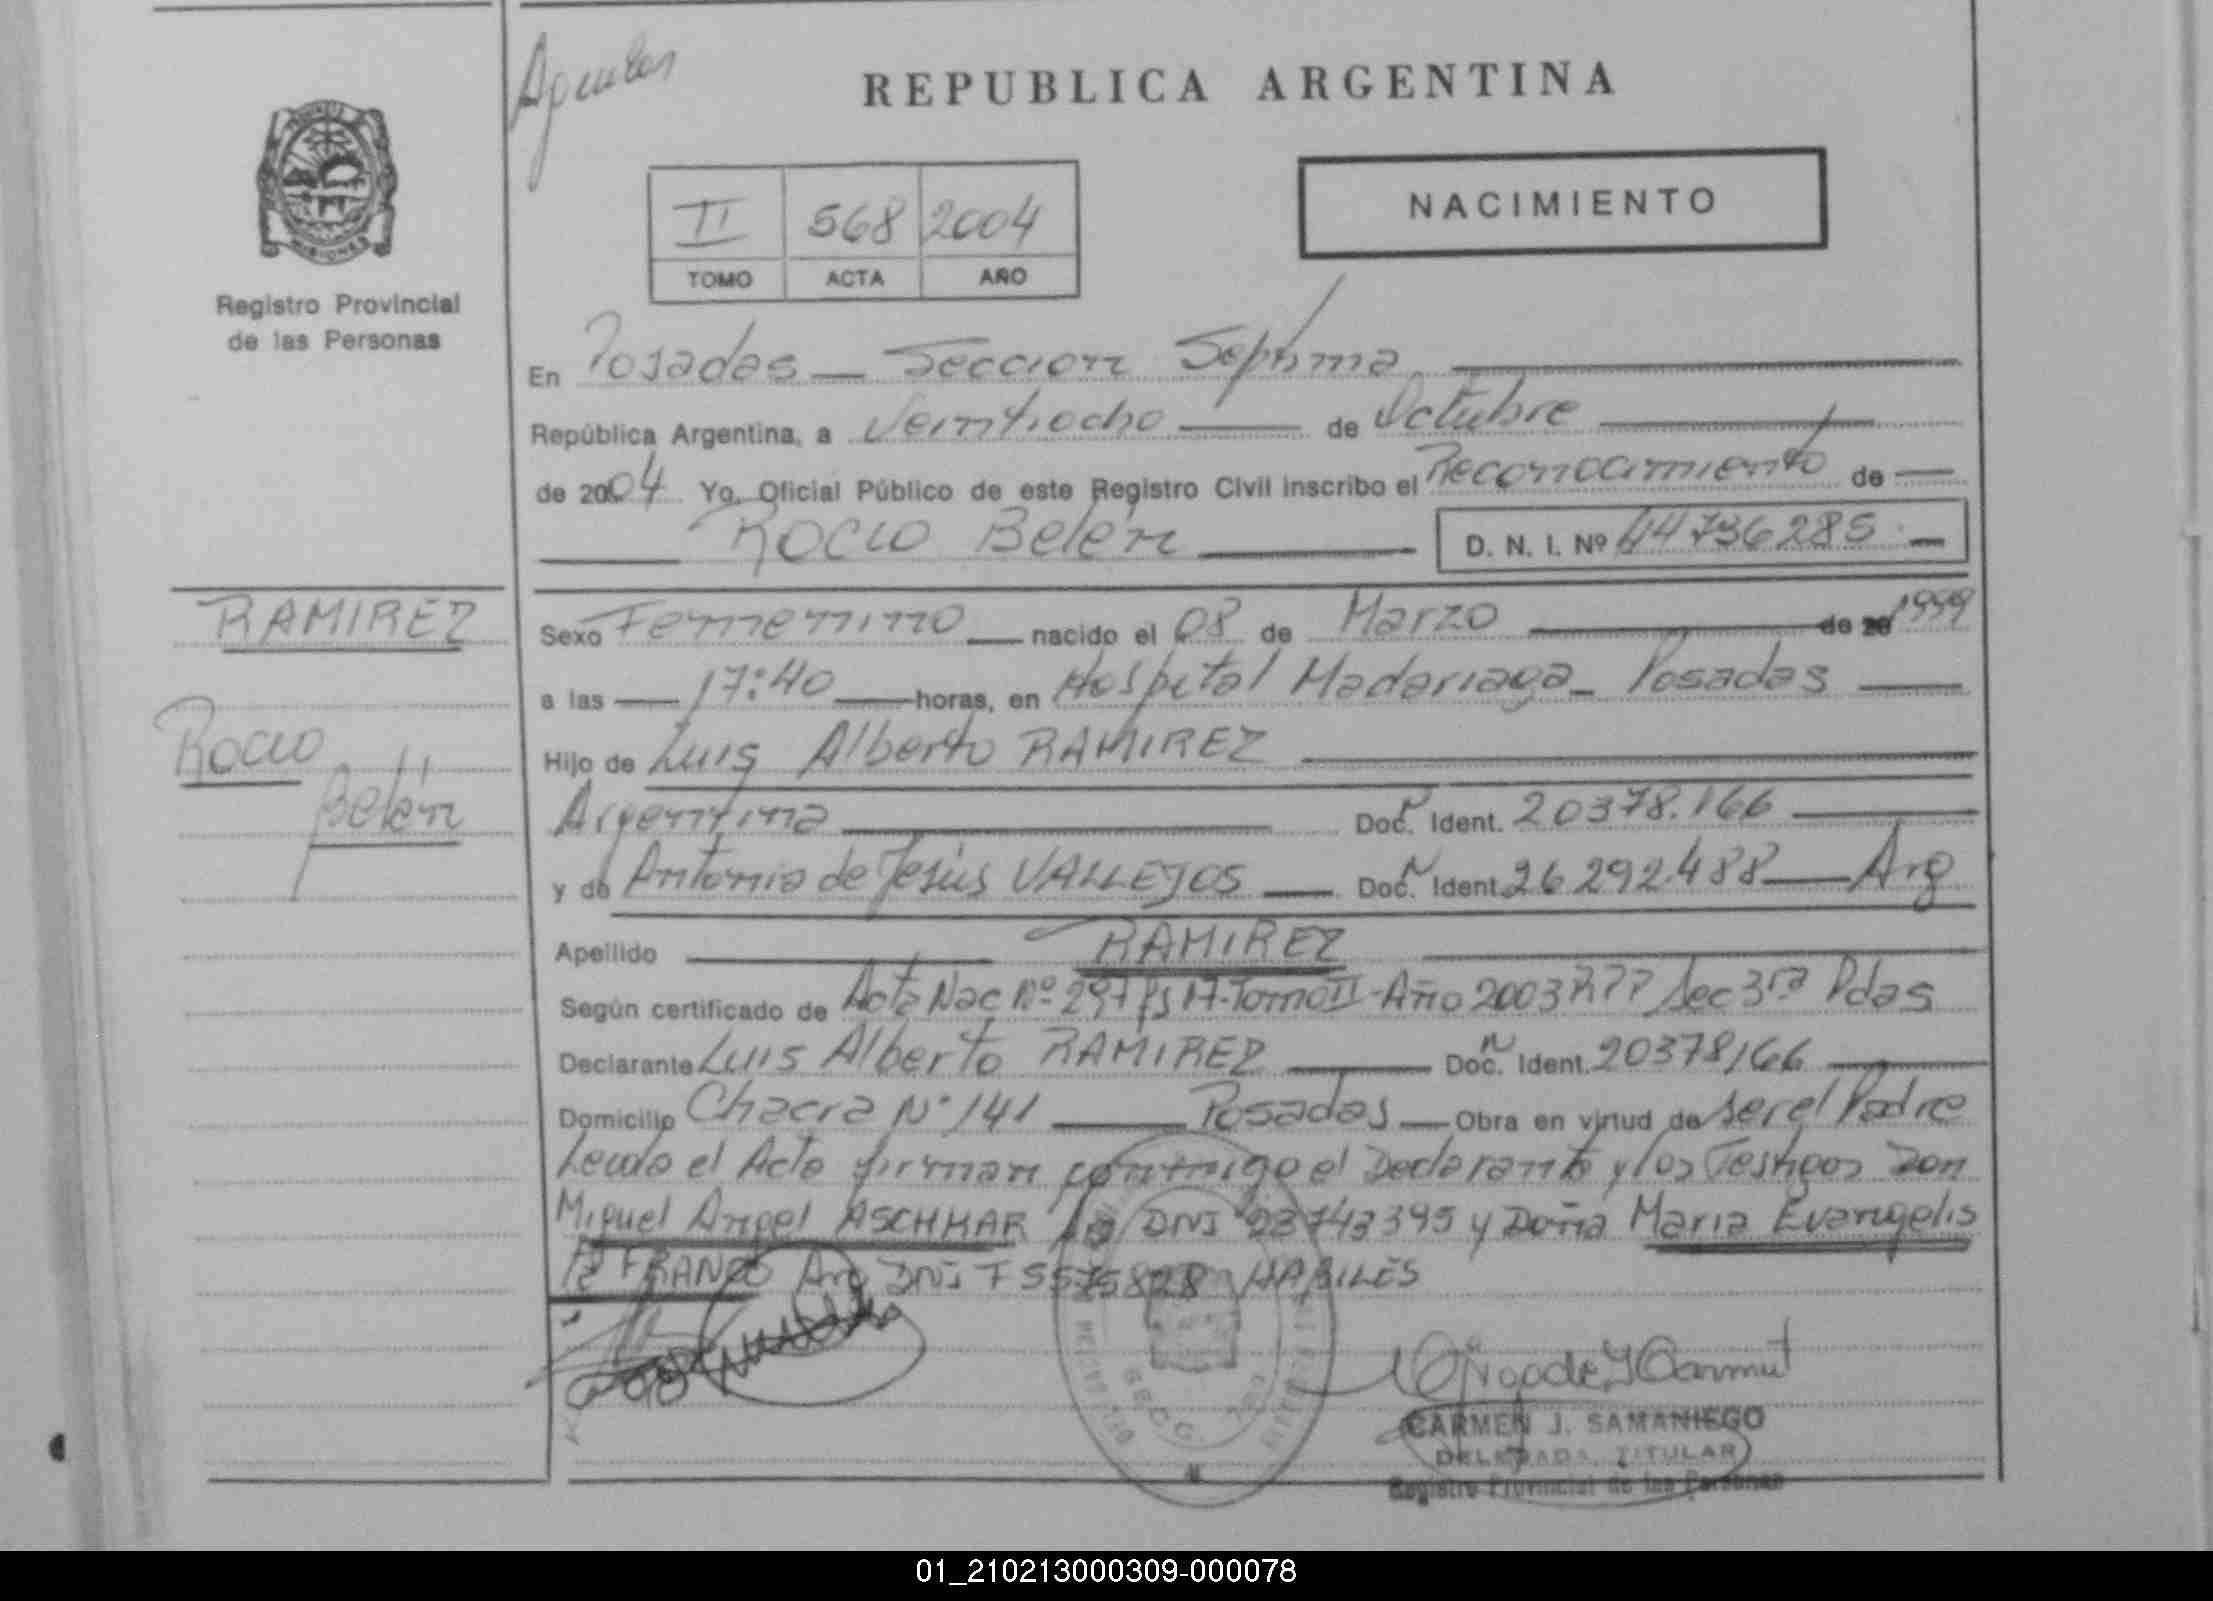 REPUBLICA ARGENTINA
NACIMIENTO
II 568 2004
TOMO ACTA AÑO
MISIONES
Registro Provincial
de las Personas
En Posadas — Sección Séptima
República Argentina, a Veintiocho — de Octubre
de 2004 Yo, Oficial Público de este Registro Civil inscribo el Reconocimiento de —
Rocio Belén — D. N. I. Nº 44736285 —
RAMIREZ
Rocio
Belén
Sexo Femenino — nacido el 08 de Marzo — de 20 1999
a las — 17:40 — horas, en Hospital Madariaga - Posadas —
Hijo de Luis Alberto RAMIREZ
Argentina — Doc. Ident. 20378.166 —
y de Antonia de Jesús VALLEJOS — Doc. Ident. 26292.488 — Arg
Apellido — RAMIREZ
Según certificado de Acta Nac Nº 297 Fs 17-Tomo II-Año 2003 Sec 3ra Pdas
Declarante Luis Alberto RAMIREZ — Doc. Ident. 20378166 —
Domicilio Chacra Nº 141 — Posadas — Obra en virtud de ser el Padre
Leida el Acta firman conmigo el Declarante y los Testigos Don
Miguel Angel ASCHMAR Arg DNI 23743395 y Doña Maria Evangelis
ta FRANCO Arg DNI F 5575828 HABILES
CARMEN J. SAMANIEGO
DELEGADA TITULAR
Registro Provincial de las Personas
01_210213000309-000078